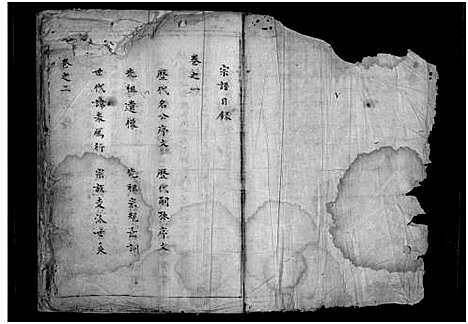 宗譜目錄
卷之一
歷代名公序文 歷代嗣孫序文
先祖遺像 先祖宗規家訓
世代 宗族支派世系
卷之二